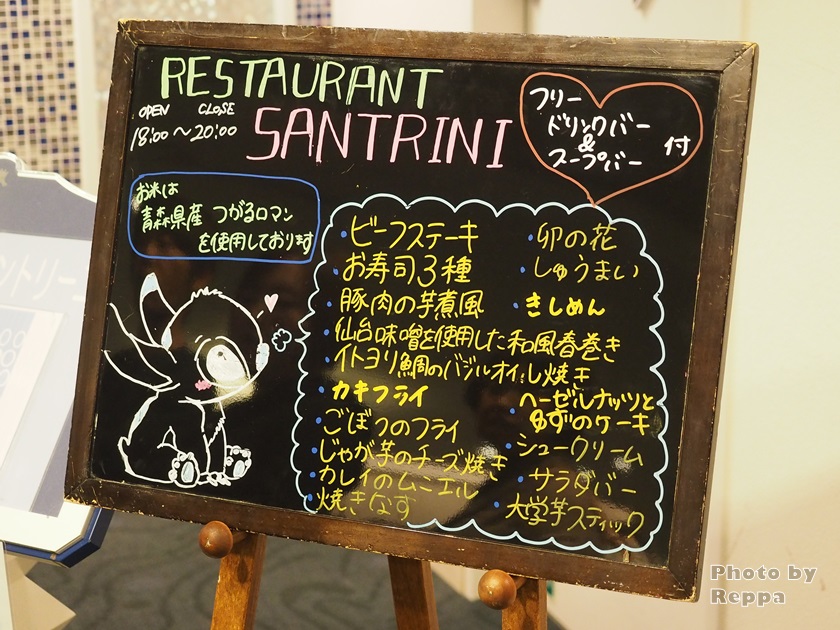 RESTAURANT
SANTRINI
OPEN CLOSE
18:00〜20:00
フリー
ドリンクバー
&
スープバー
付
お米は
青森県産 つがるロマン
を使用しております
・ビーフステーキ
・お寿司3種
・豚肉の芋煮風
・仙台味噌を使用した和風春巻き
・イトヨリ鯛のバジルオイル焼き
・カキフライ
・ごぼうのフライ
・じゃが芋のチーズ焼き
・カレイのムニエル
・焼きなす
・卯の花
・しゅうまい
・きしめん
・ヘーゼルナッツと
ゆずのケーキ
・シュークリーム
・サラダバー
・大学芋スティック
Photo by
Reppa